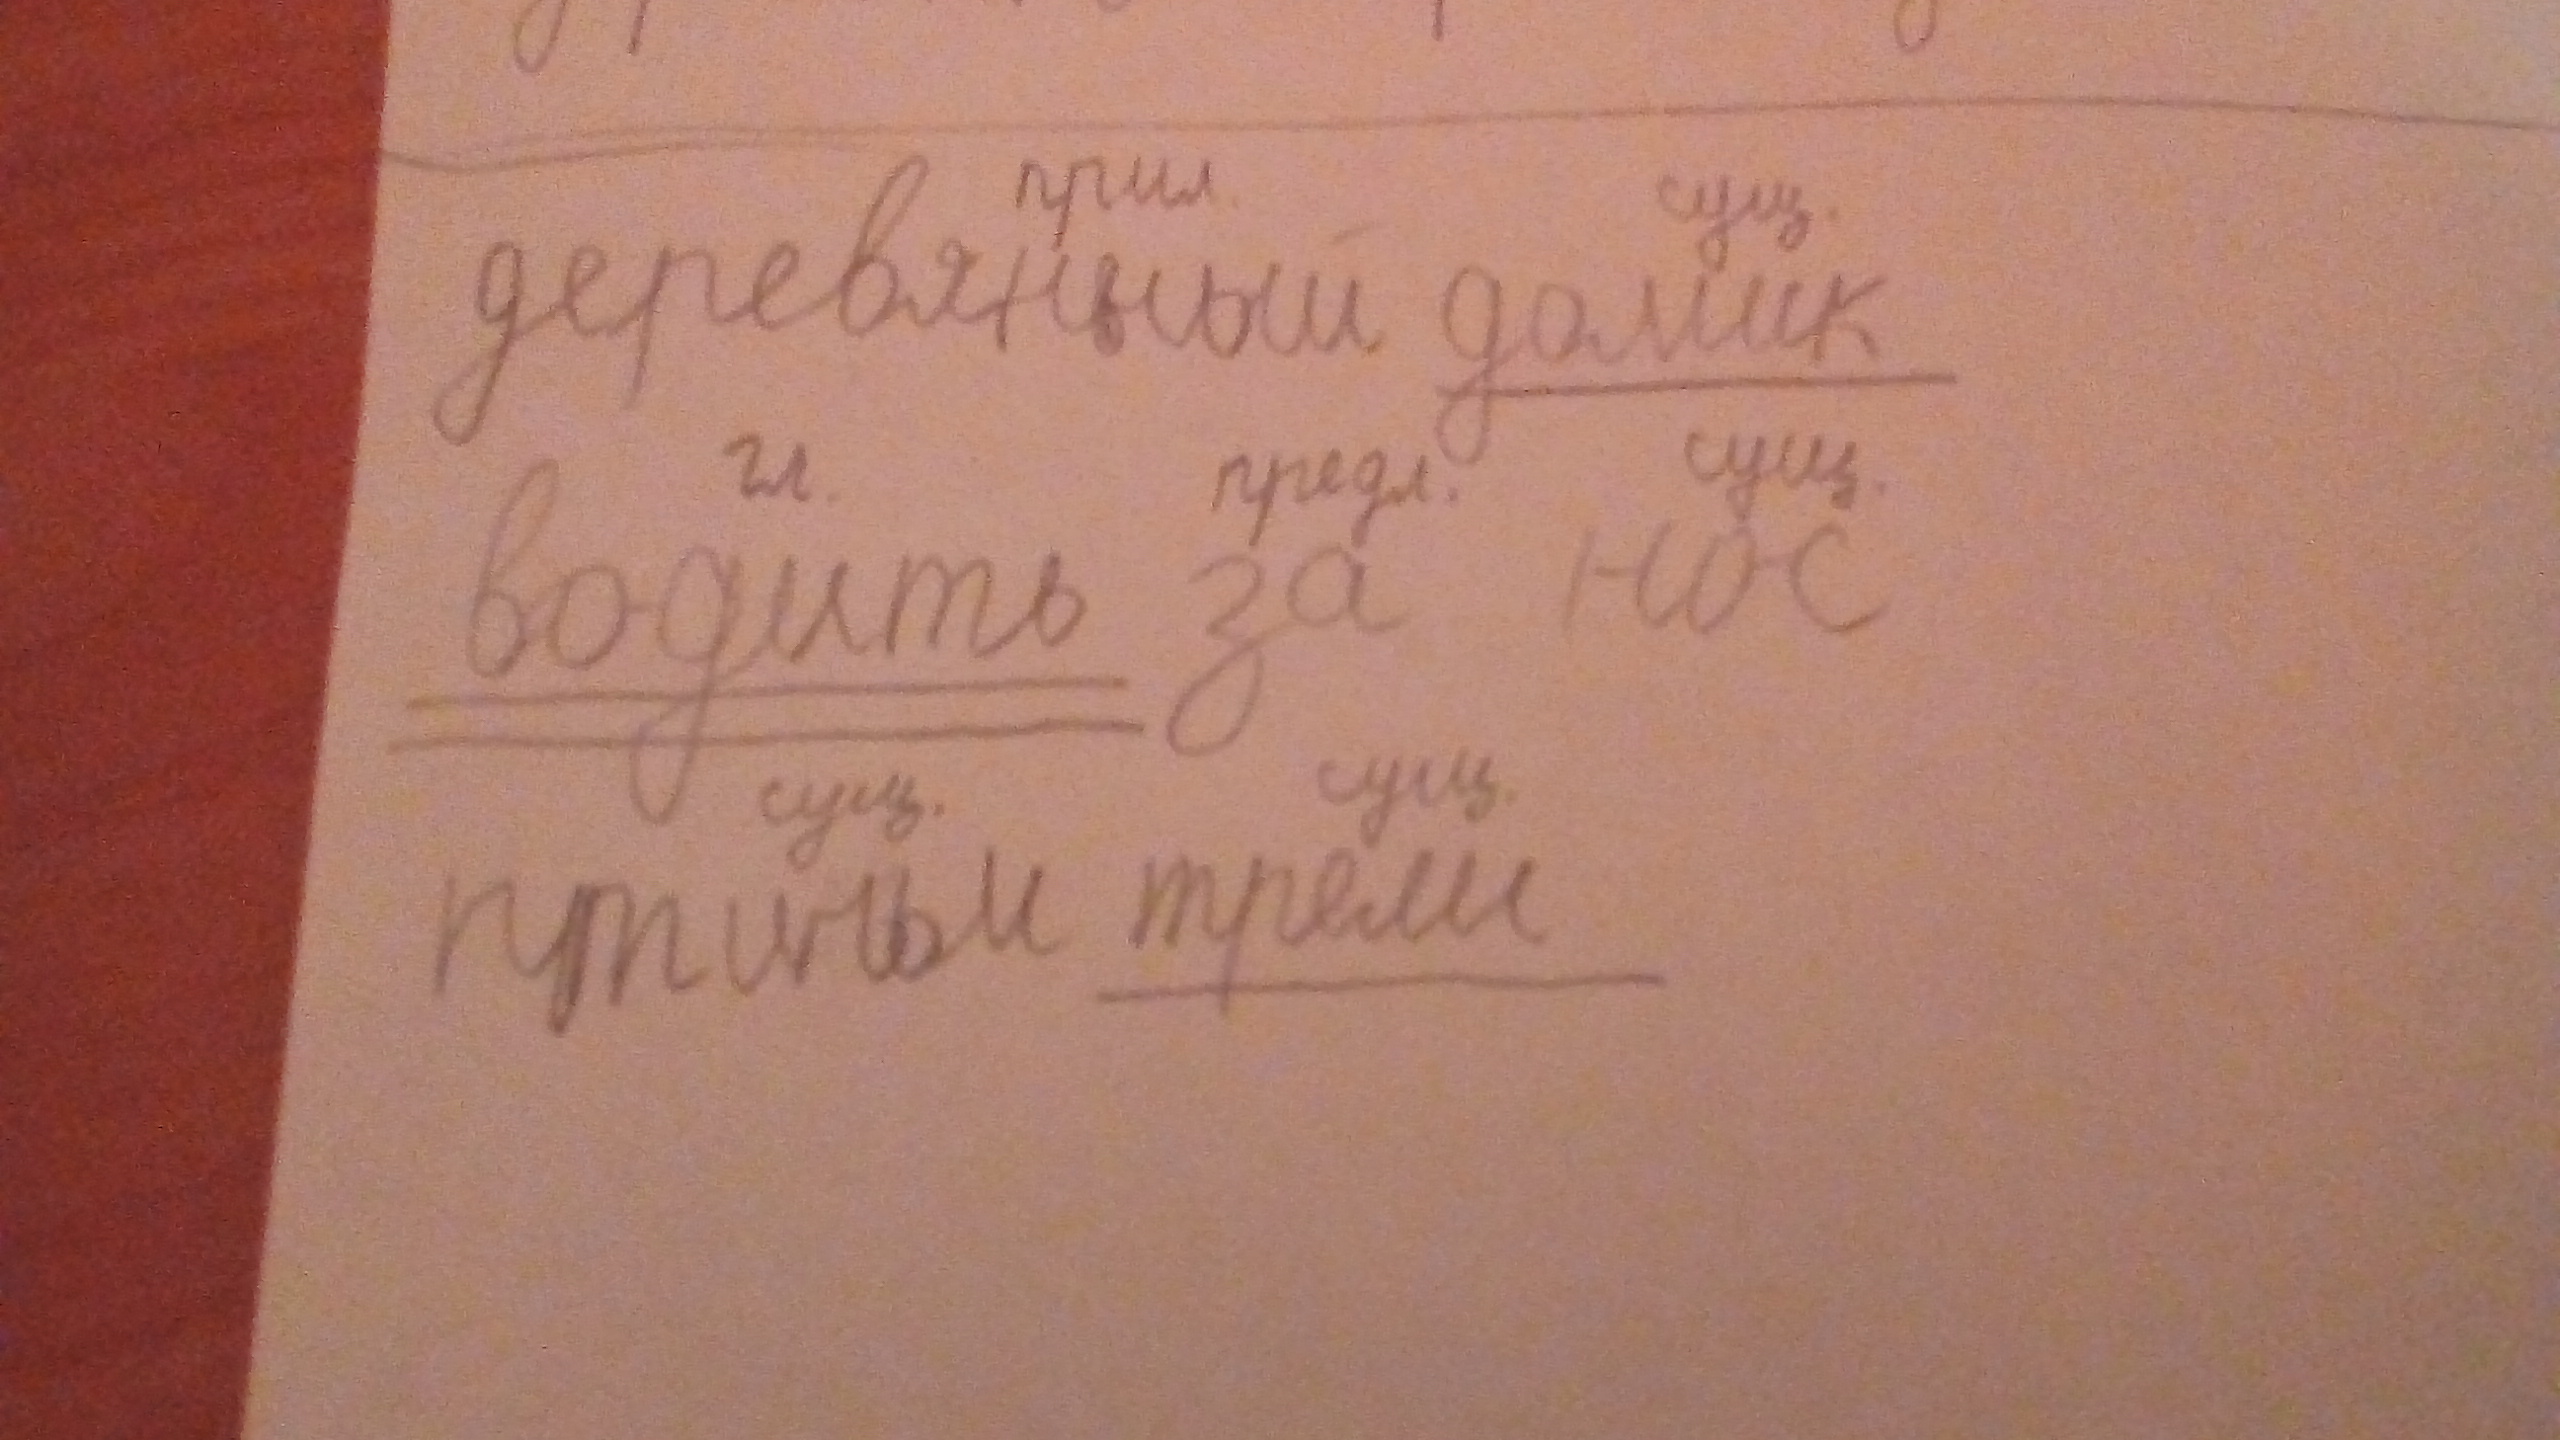 прил. сущ.
деревянный домик
гл. предл. сущ.
водить за нос
сущ. сущ.
птичьи трели